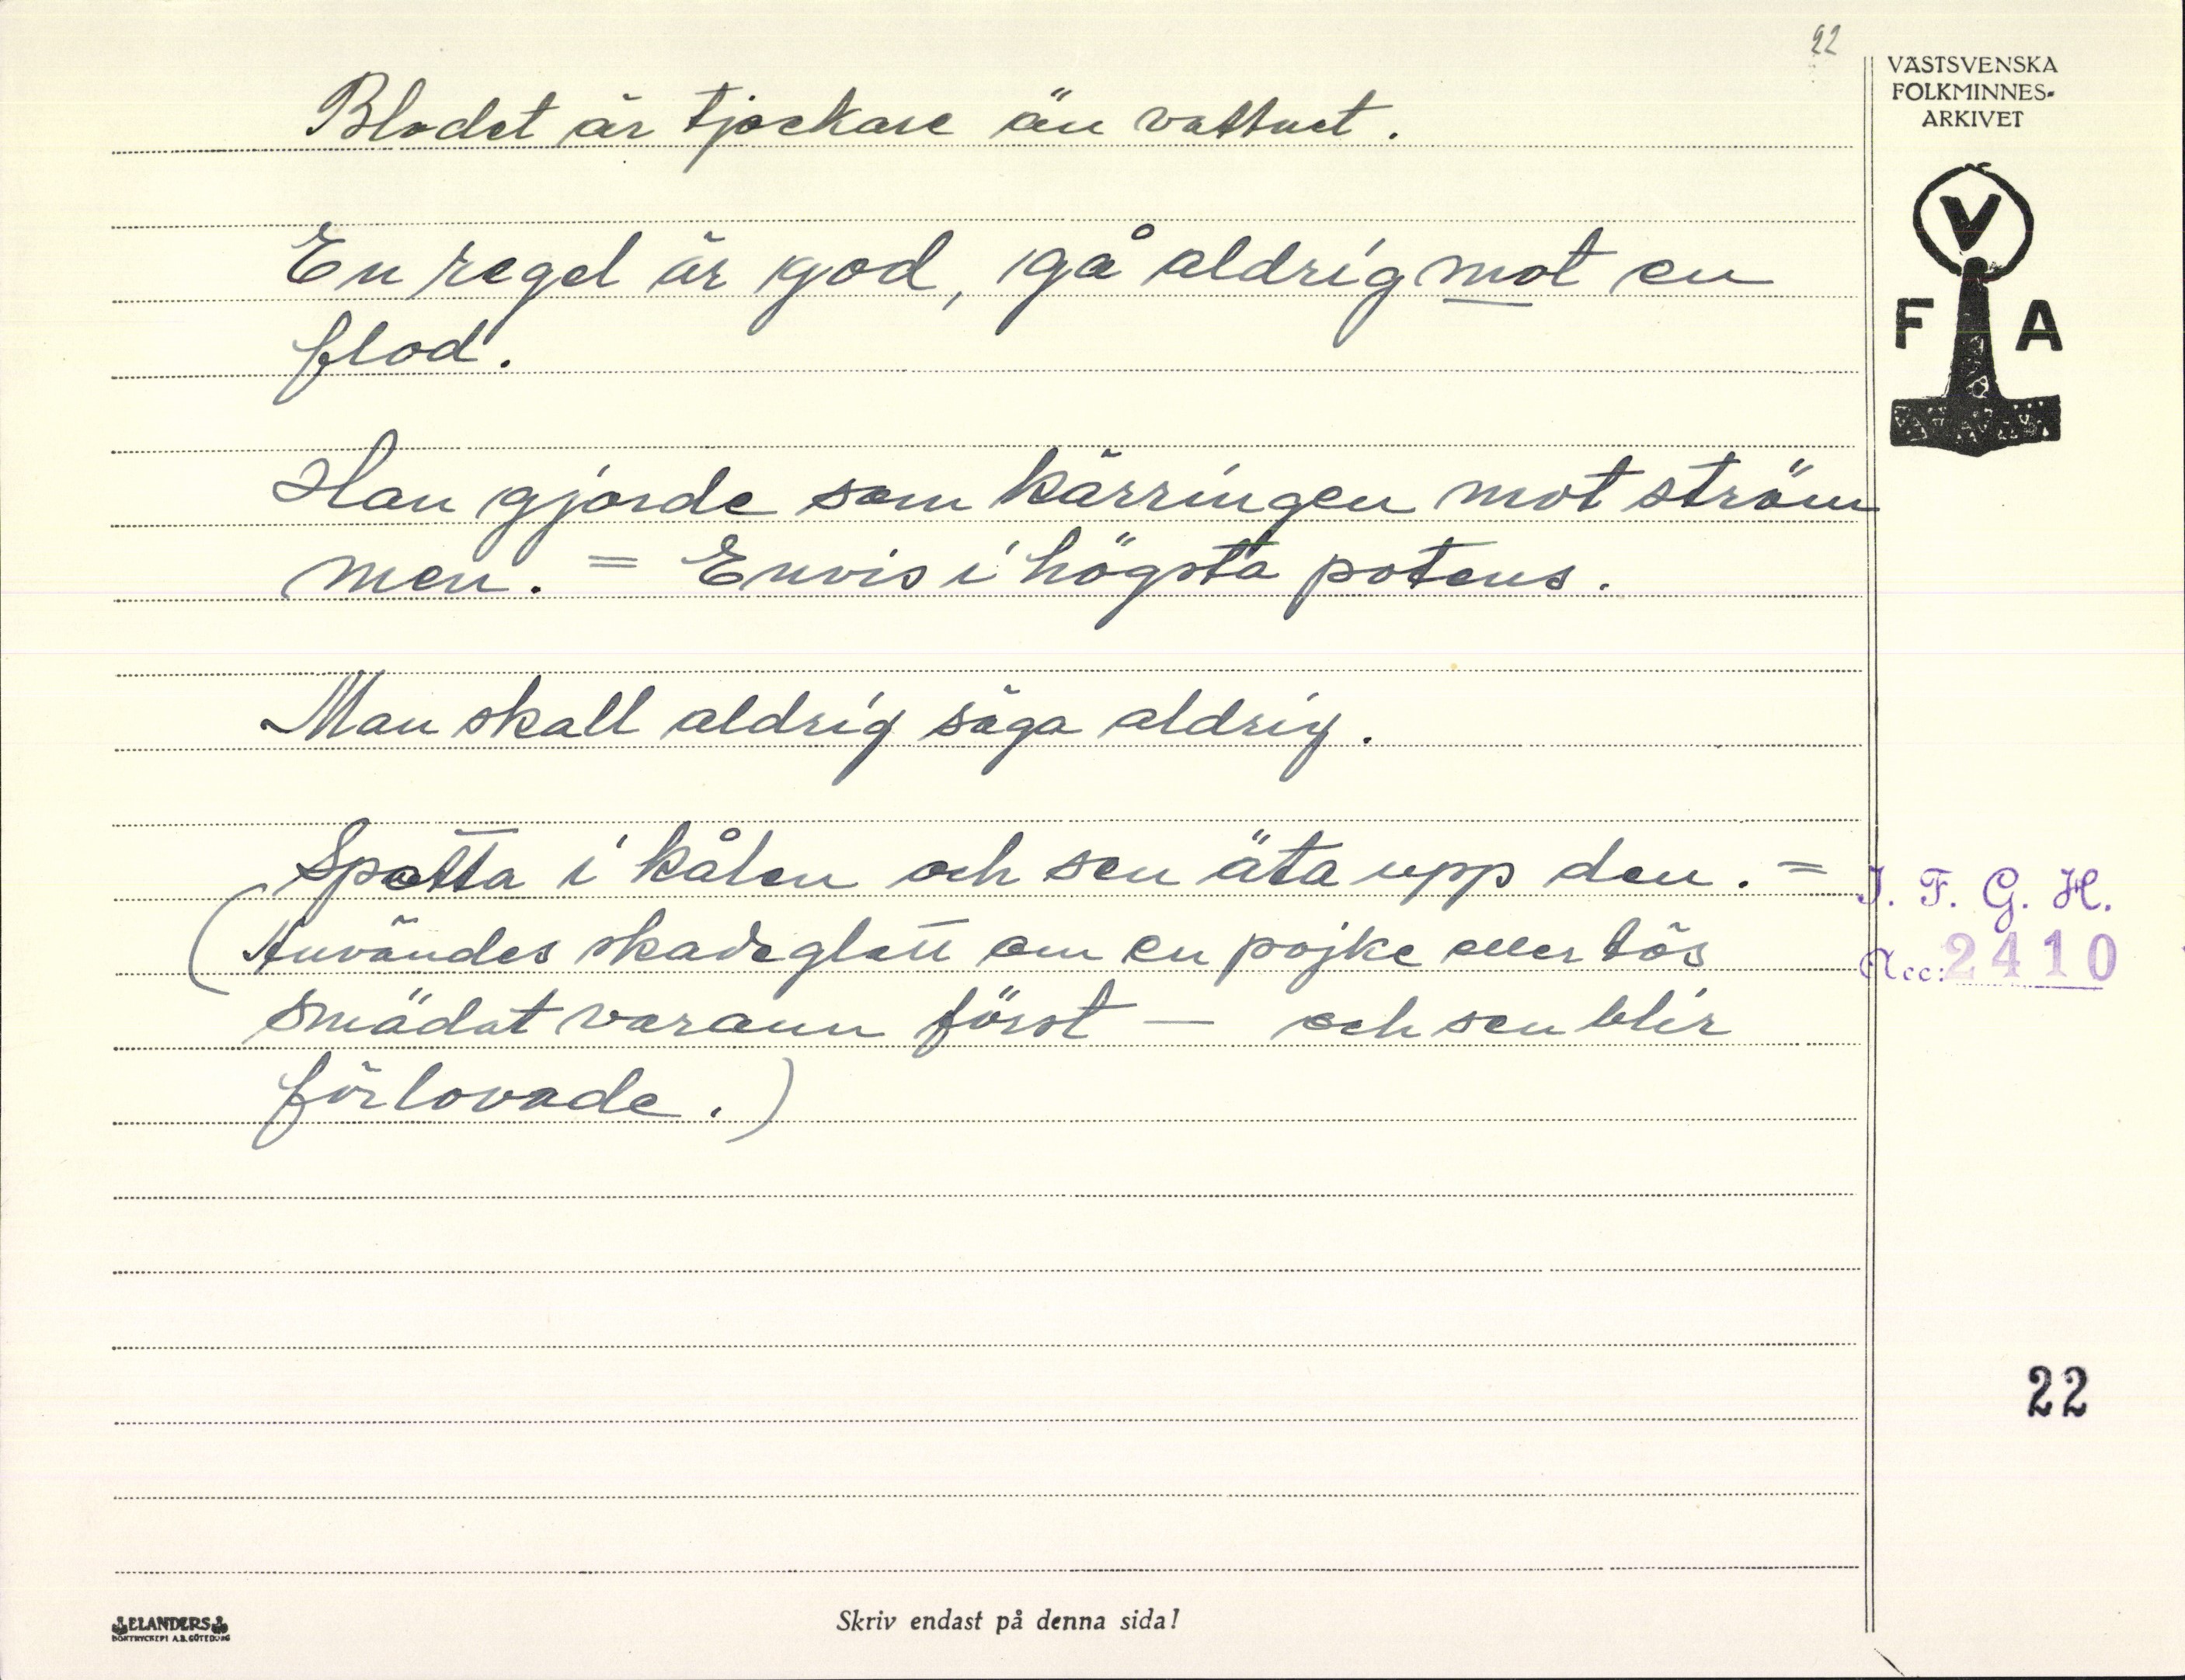 22
VÄSTSVENSKA
FOLKMINNES-
ARKIVET
V
F A
Blodet är tjockare än vattnet.
En regel är god, gå aldrig mot en
flod.
Han gjorde som kärringen mot ström
men. = Envis i högsta potens.
Man skall aldrig säga aldrig.
Spotta i kålen och sen äta upp den. =
(Användes skadeglatt om en pojke eller tös
smädat varann först — och sen blir
förlovade.)
I. F. G. H.
Acc: 2410
22
ELANDERS
BOKTRYCKERI A.B. GÖTEBORG
Skriv endast på denna sida!